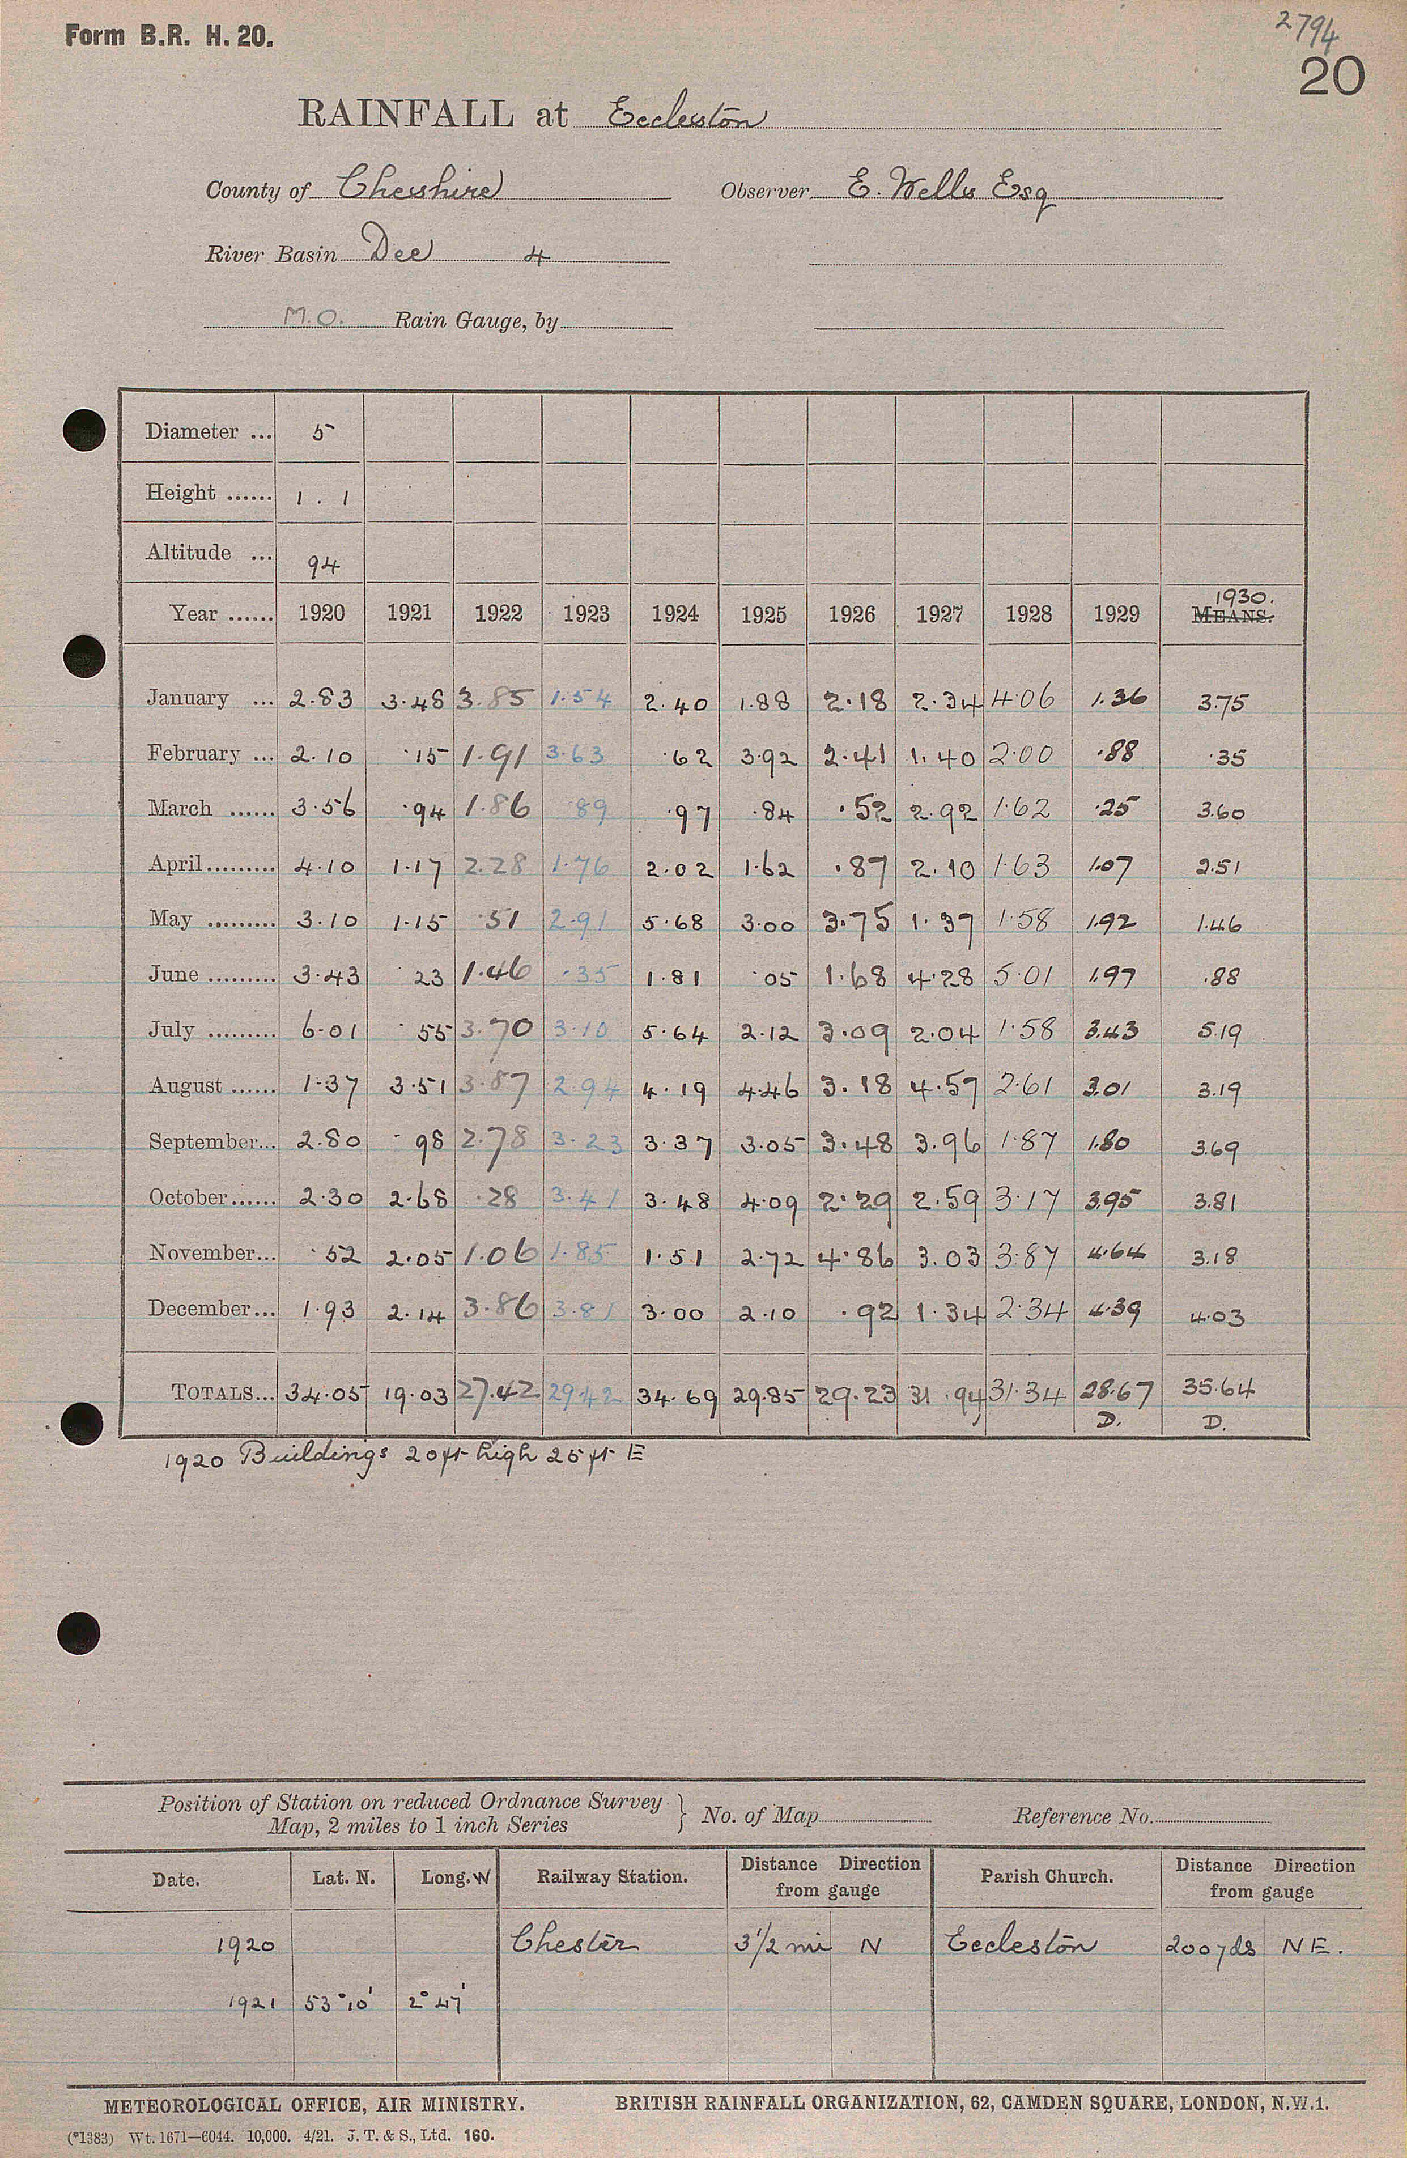 Form B.R. H. 20.
2794
20
RAINFALL at Eccleston
County of Cheshire Observer E. Wells Esq
River Basin Dee 4
M.O. Rain Gauge, by
Diameter ... 5
Height ...... 1 . 1
Altitude ... 94
1930.
Year ...... 1920 1921 1922 1923 1924 1925 1926 1927 1928 1929 MEANS.
January ... 2.83 3.48 3.85 1.54 2.40 1.88 2.18 2.34 4.06 1.36 3.75
February ... 2.10 .15 1.91 3.63 .62 3.92 2.41 1.40 2.00 .88 .35
March ...... 3.56 .94 1.86 .89 .97 .84 .52 2.92 1.62 .25 3.60
April ......... 4.10 1.17 2.28 1.76 2.02 1.62 .87 2.10 1.63 1.07 2.51
May ......... 3.10 1.15 .51 2.91 5.68 3.00 3.75 1.37 1.58 1.92 1.46
June ......... 3.43 .23 1.46 .35 1.81 .05 1.68 4.28 5.01 1.97 .88
July ......... 6.01 .55 3.70 3.10 5.64 2.12 3.09 2.04 1.58 3.43 5.19
August ...... 1.37 3.51 3.87 2.94 4.19 4.46 3.18 4.57 2.61 3.01 3.19
September... 2.80 .98 2.78 3.23 3.37 3.05 3.48 3.96 1.87 1.80 3.69
October...... 2.30 2.68 .28 3.41 3.48 4.09 2.29 2.59 3.17 3.95 3.81
November... .52 2.05 1.06 1.85 1.51 2.72 4.86 3.03 3.87 4.64 3.18
December... 1.93 2.14 3.86 3.81 3.00 2.10 .92 1.34 2.34 4.39 4.03
TOTALS... 34.05 19.03 27.42 29.42 34.69 29.85 29.23 31.94 31.34 28.67 35.64
D. D.
1920 Buildings 20 ft high 25 ft E
Position of Station on reduced Ordnance Survey
Map, 2 miles to 1 inch Series } No. of Map Reference No.
Date. Lat. N. Long. W Railway Station. Distance Direction from gauge Parish Church. Distance Direction from gauge
1920 Chester 3 1/2 mi N Eccleston 200 yds NE.
1921 53°10' 2°47'
METEOROLOGICAL OFFICE, AIR MINISTRY. BRITISH RAINFALL ORGANIZATION, 62, CAMDEN SQUARE, LONDON, N.W.1.
(*1383) Wt. 1671—6044. 10,000. 4/21. J. T. & S., Ltd. 160.